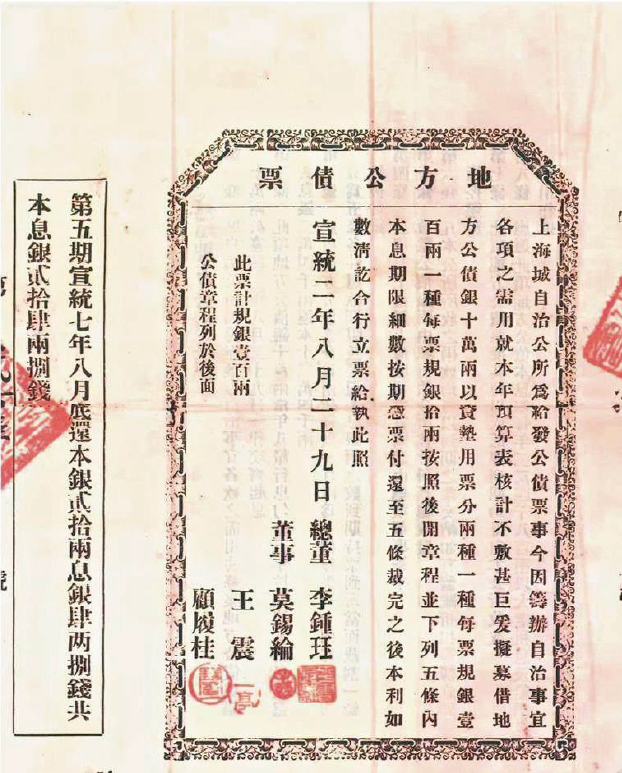 地方公債票
上海城自治公所爲給發公債票事今因籌辦自治事宜
各項之需用就本年預算表核計不敷甚巨爰擬募借地
方公債銀十萬兩以資墊用票分兩種一種每票規銀壹
百兩一種每票規銀拾兩按照後開章程並下列五條內
本息期限細數按期憑票付還至五條裁完之後本利如
數淸訖合行立票給執此照
宣統二年八月二十九日
總董 李鍾珏
董事 莫錫綸
王震
顧履桂
此票計規銀壹百兩
公債章程列於後面
第五期宣統七年八月底還本銀貳拾兩息銀肆两捌錢共
本息銀貳拾肆兩捌錢